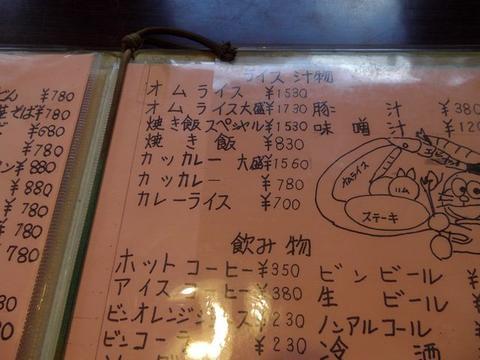 どん ¥780
そば¥780
¥680
¥780
¥880
¥880
¥780
¥780
¥780
ライス 汁物
オムライス ¥1530
オムライス大盛¥1730
焼き飯スペシャル¥1530
焼き飯 ¥830
カツカレー 大盛¥1560
カツカレー ¥780
カレーライス ¥700
豚汁 ¥380
味噌汁 ¥120
オムライス
ハム
ステーキ
飲み物
ホットコーヒー¥350
アイスコーヒー¥380
ビンオレンジジュース¥230
ビンコーラ ¥230
ビンビール
生ビール
ノンアルコール
冷酒